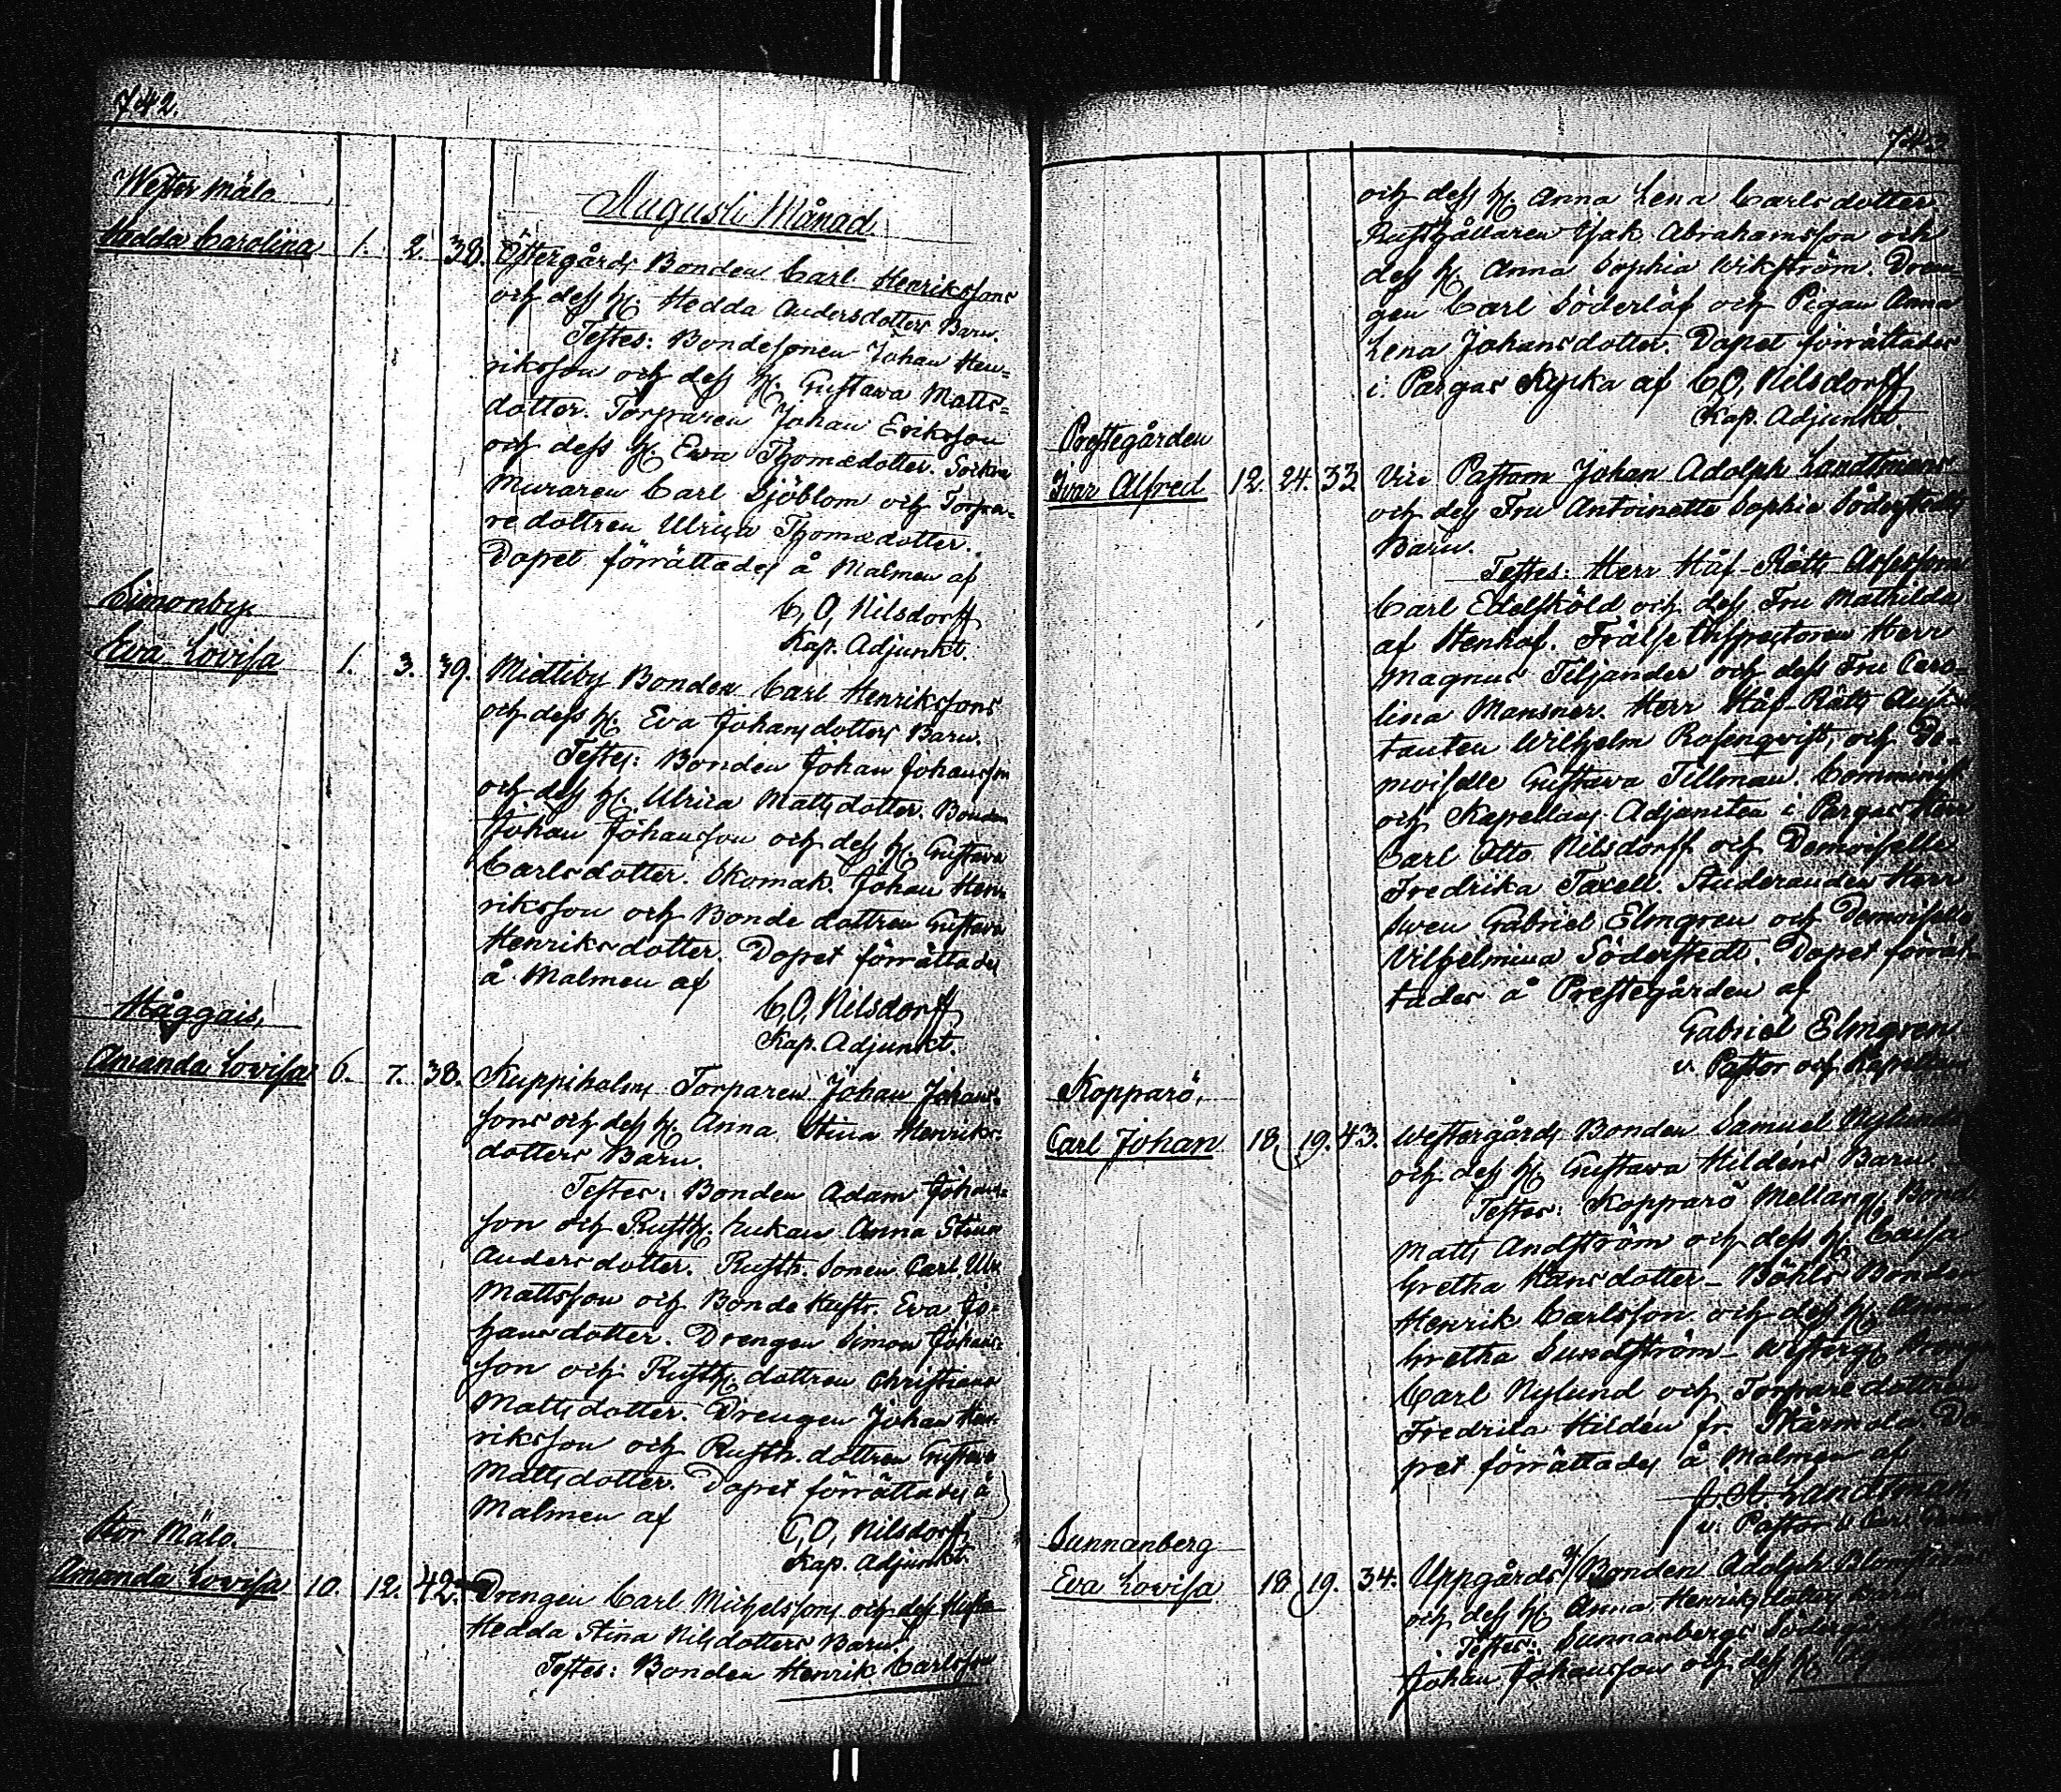 742.
Wester Mälo
Augusti Månad.
Hedda Carolina 1. 2. 38. Östergårds Bonden Carl Henrikssons
och dess H. Hedda Andersdotters Barn.
Testes: Bondesonen Johan Hen=
riksson och dess H. Gustava Matts=
dotter. Torparen Johan Eriksson
och dess H. Ewa Thomædotter. Sockne
Muraren Carl Sjöblom och Torpa=
re dottren Ulrica Thomædotter.
Dopet förrättades å Malmen af
C. O. Nilsdorff
Kap. Adjunkt.
Simonby
Eva Lovisa 1. 3. 39. Midtiby Bonden Carl Henrikssons
och dess H. Eva Johansdotters Barn.
Testes: Bonden Johan Johansson
och dess H. Ulrica Mattsdotter. Bonden
Johan Johansson och dess H. Gustava
Carlsdotter. Skomak. Johan Hen=
riksson och Bonde dottren Gustava
Henriksdotter. Dopet förrättades
å Malmen af
C. O. Nilsdorff
Kap. Adjunkt.
Måggais,
Amanda Lovisa 6. 7. 38. Kuppiholms Torparen Johan Johans=
sons och dess H. Anna Stina Henriks=
dotters Barn.
Testes: Bonden Adam Johans=
son och Rusth. Enkan Anna Stina
Andersdotter. Rusth. Sonen Carl
Mattsson och Bonde Hustr. Eva Jo=
hansdotter. Drengen Simon Johans=
son och Rusth. dottren Christina
Mattsdotter. Drengen Johan Hen=
riksson och Rusth. dottren Gustava
Mattsdotter. Dopet förrättades å
Malmen af
C. O. Nilsdorff
Kap. Adjunkt.
Stor Mälo.
Amanda Lovisa 10. 12. 42. Drengen Carl Michelssons och dess Hustru
Hedda Stina Nilsdotters Barn.
Testes: Bonden Henrik Carlsson
743
och dess H. Anna Lena Carlsdotter
Rusthållaren Isak Abrahamsson och
dess H. Anna Sophia Wikström. Dren=
gen Carl Söderlöf och Pigan Anna
Lena Johansdotter. Dopet förrättades
i Pargas Kyrka af C. O. Nilsdorff
Kap. Adjunkt.
Prestegården
Ivar Alfred 12. 24. 33 Vice Pastorn Johan Adolph Landtmans
och dess Fru Antoinette Sophia Söderstedts
Barn.
Testes: Herr Håf-Rätts Assessorn
Carl Edelsköld och dess Fru Mathilda
af Stenhof. Frälse Inspectoren Herr
Magnus Tiljander och dess Fru Caro=
lina Mansner. Herr Håf-Rätts Auscul=
tanten Wilhelm Rosenqvist, och De=
moiselle Gustava Tillman. Comminist
och Kapellans Adjuncten i Pargas Herr
Carl Otto Nilsdorff och Demoiselle
Fredrika Taxell. Studeranden Herr
Swen Gabriel Elmgren och Demoiselle
Vilhelmina Söderstedt. Dopet förrät=
tades å Prestegården af
Gabriel Elmgren
v. Pastor och Kapellan
Kopparö,
Carl Johan 18. 19. 43. Westergårds Bonden Samuel Nylunds
och dess H. Gustava Hildéns Barn.
Testes: Kopparö Mellang. Bond.
Matts Andström och dess H. Caisa
Gretha Hansdotter – Böhls Bonden
Henrik Carlsson och dess H. Anna
Gretha Sundström – Westerg. Drengen
Carl Nylund och Torpare dottren
Fredrika Hildén fr. Skärmola. Do=
pet förrättades å Malmen af
J. A. Landtman
v. Pastor
Sunnanberg
Eva Lovisa 18. 19. 34. Uppgårds Bonden Adolph
och dess H. Anna Henriksdotters Barn
Testes: Sunnanbergs Södergårds
Johan Johansson och dess H.